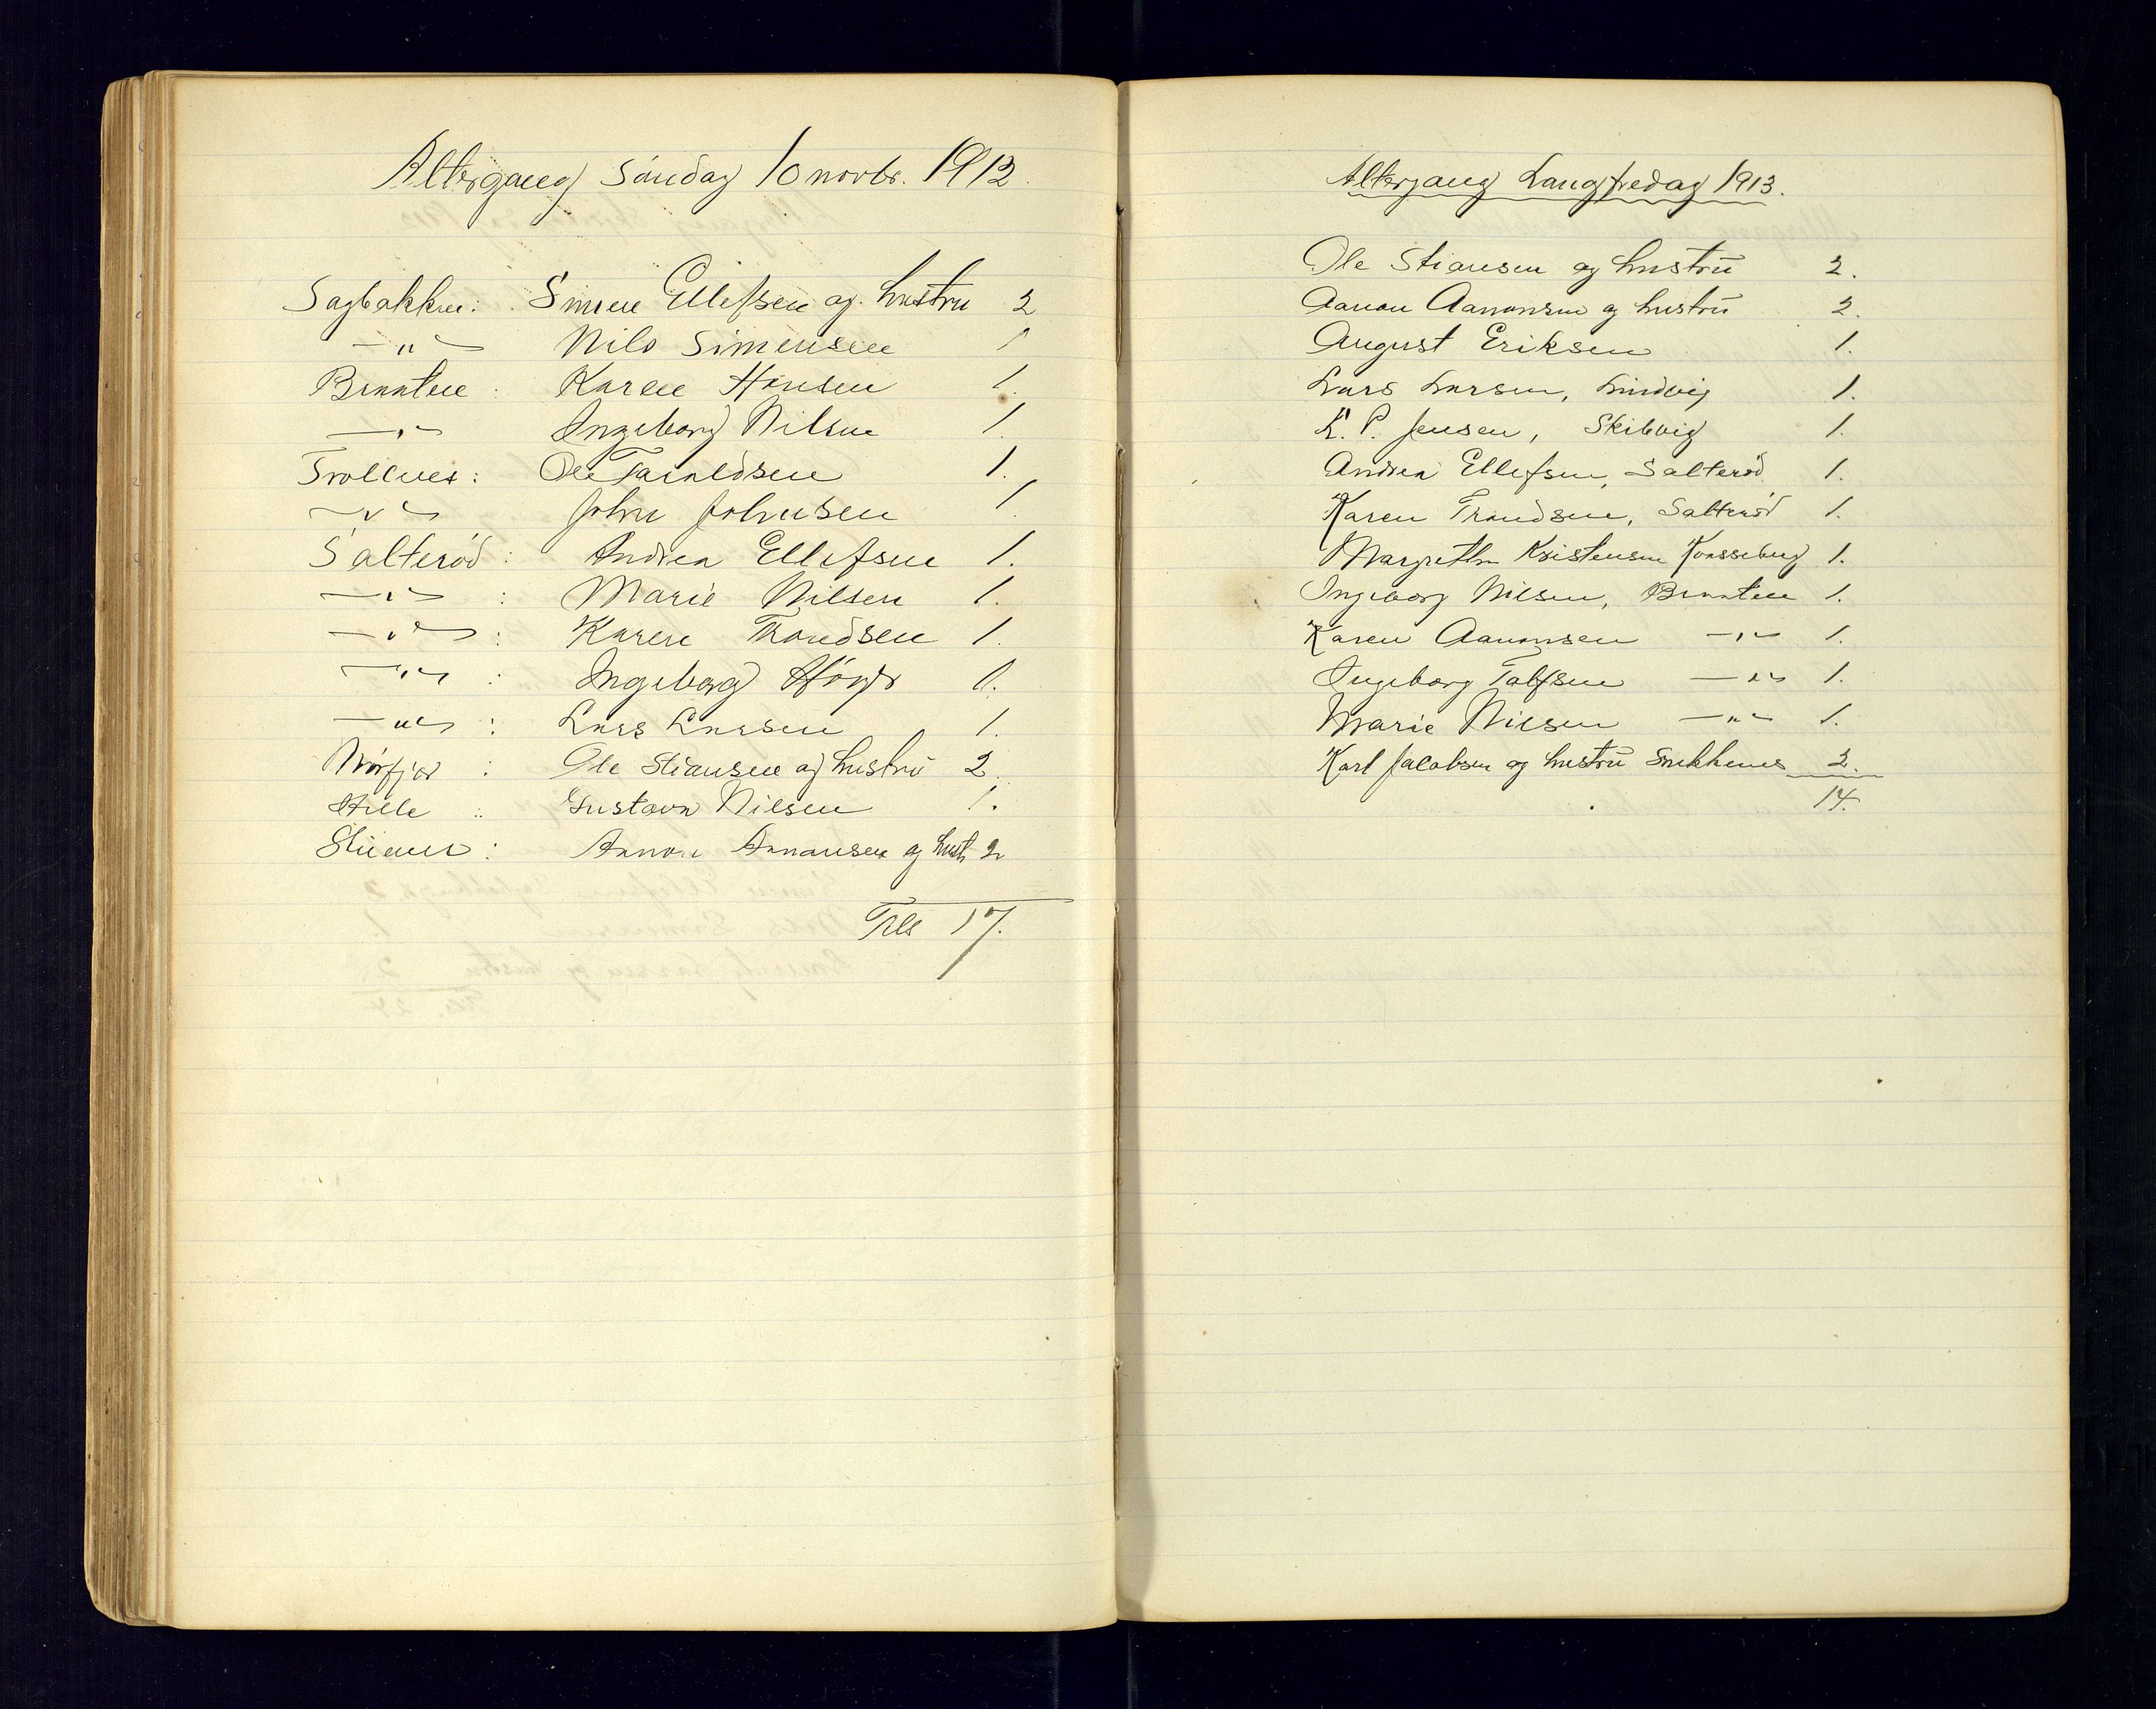 Altergang Söndag 10 novbr. 1912.
Sagbakken: Simen Ellefsen og. hustru 2
—"— Nils Simensen 1
Braaten: Karen Hansen 1.
—"— Ingeborg Nilsen 1.
Trollnes: Ole Taraldsen 1.
—"— John Johnsen 1.
Salteröd: Andrea Ellefsen 1.
—"—: Marie Nilsen 1.
—"—: Karen Trondsen 1.
—"—: Ingeborg 1.
—"—: Lars Larsen 1.
: Ole Stiansen og hustru 2.
Hille: Gustava Nilsen 1.
: Aanon Aanonsen og hust 2
Tils 17.
Altergang Langfredag 1913.
Ole Stiansen og hustru 2.
Aanon Aanonsen og hustru 2.
August Eriksen 1.
Lars Larsen, Lindvig 1.
K. P. Jensen, Skibvig 1.
Andrea Ellefsen, Salteröd 1.
Karen Trondsen, Salteröd 1.
Margrethe Kristensen 1.
Ingeborg Nilsen, Braaten 1.
Karen Aanonsen —"— 1.
Ingeborg —"— 1.
Marie Nilsen —"— 1.
Karl Jacobsen og hustru 2.
14.